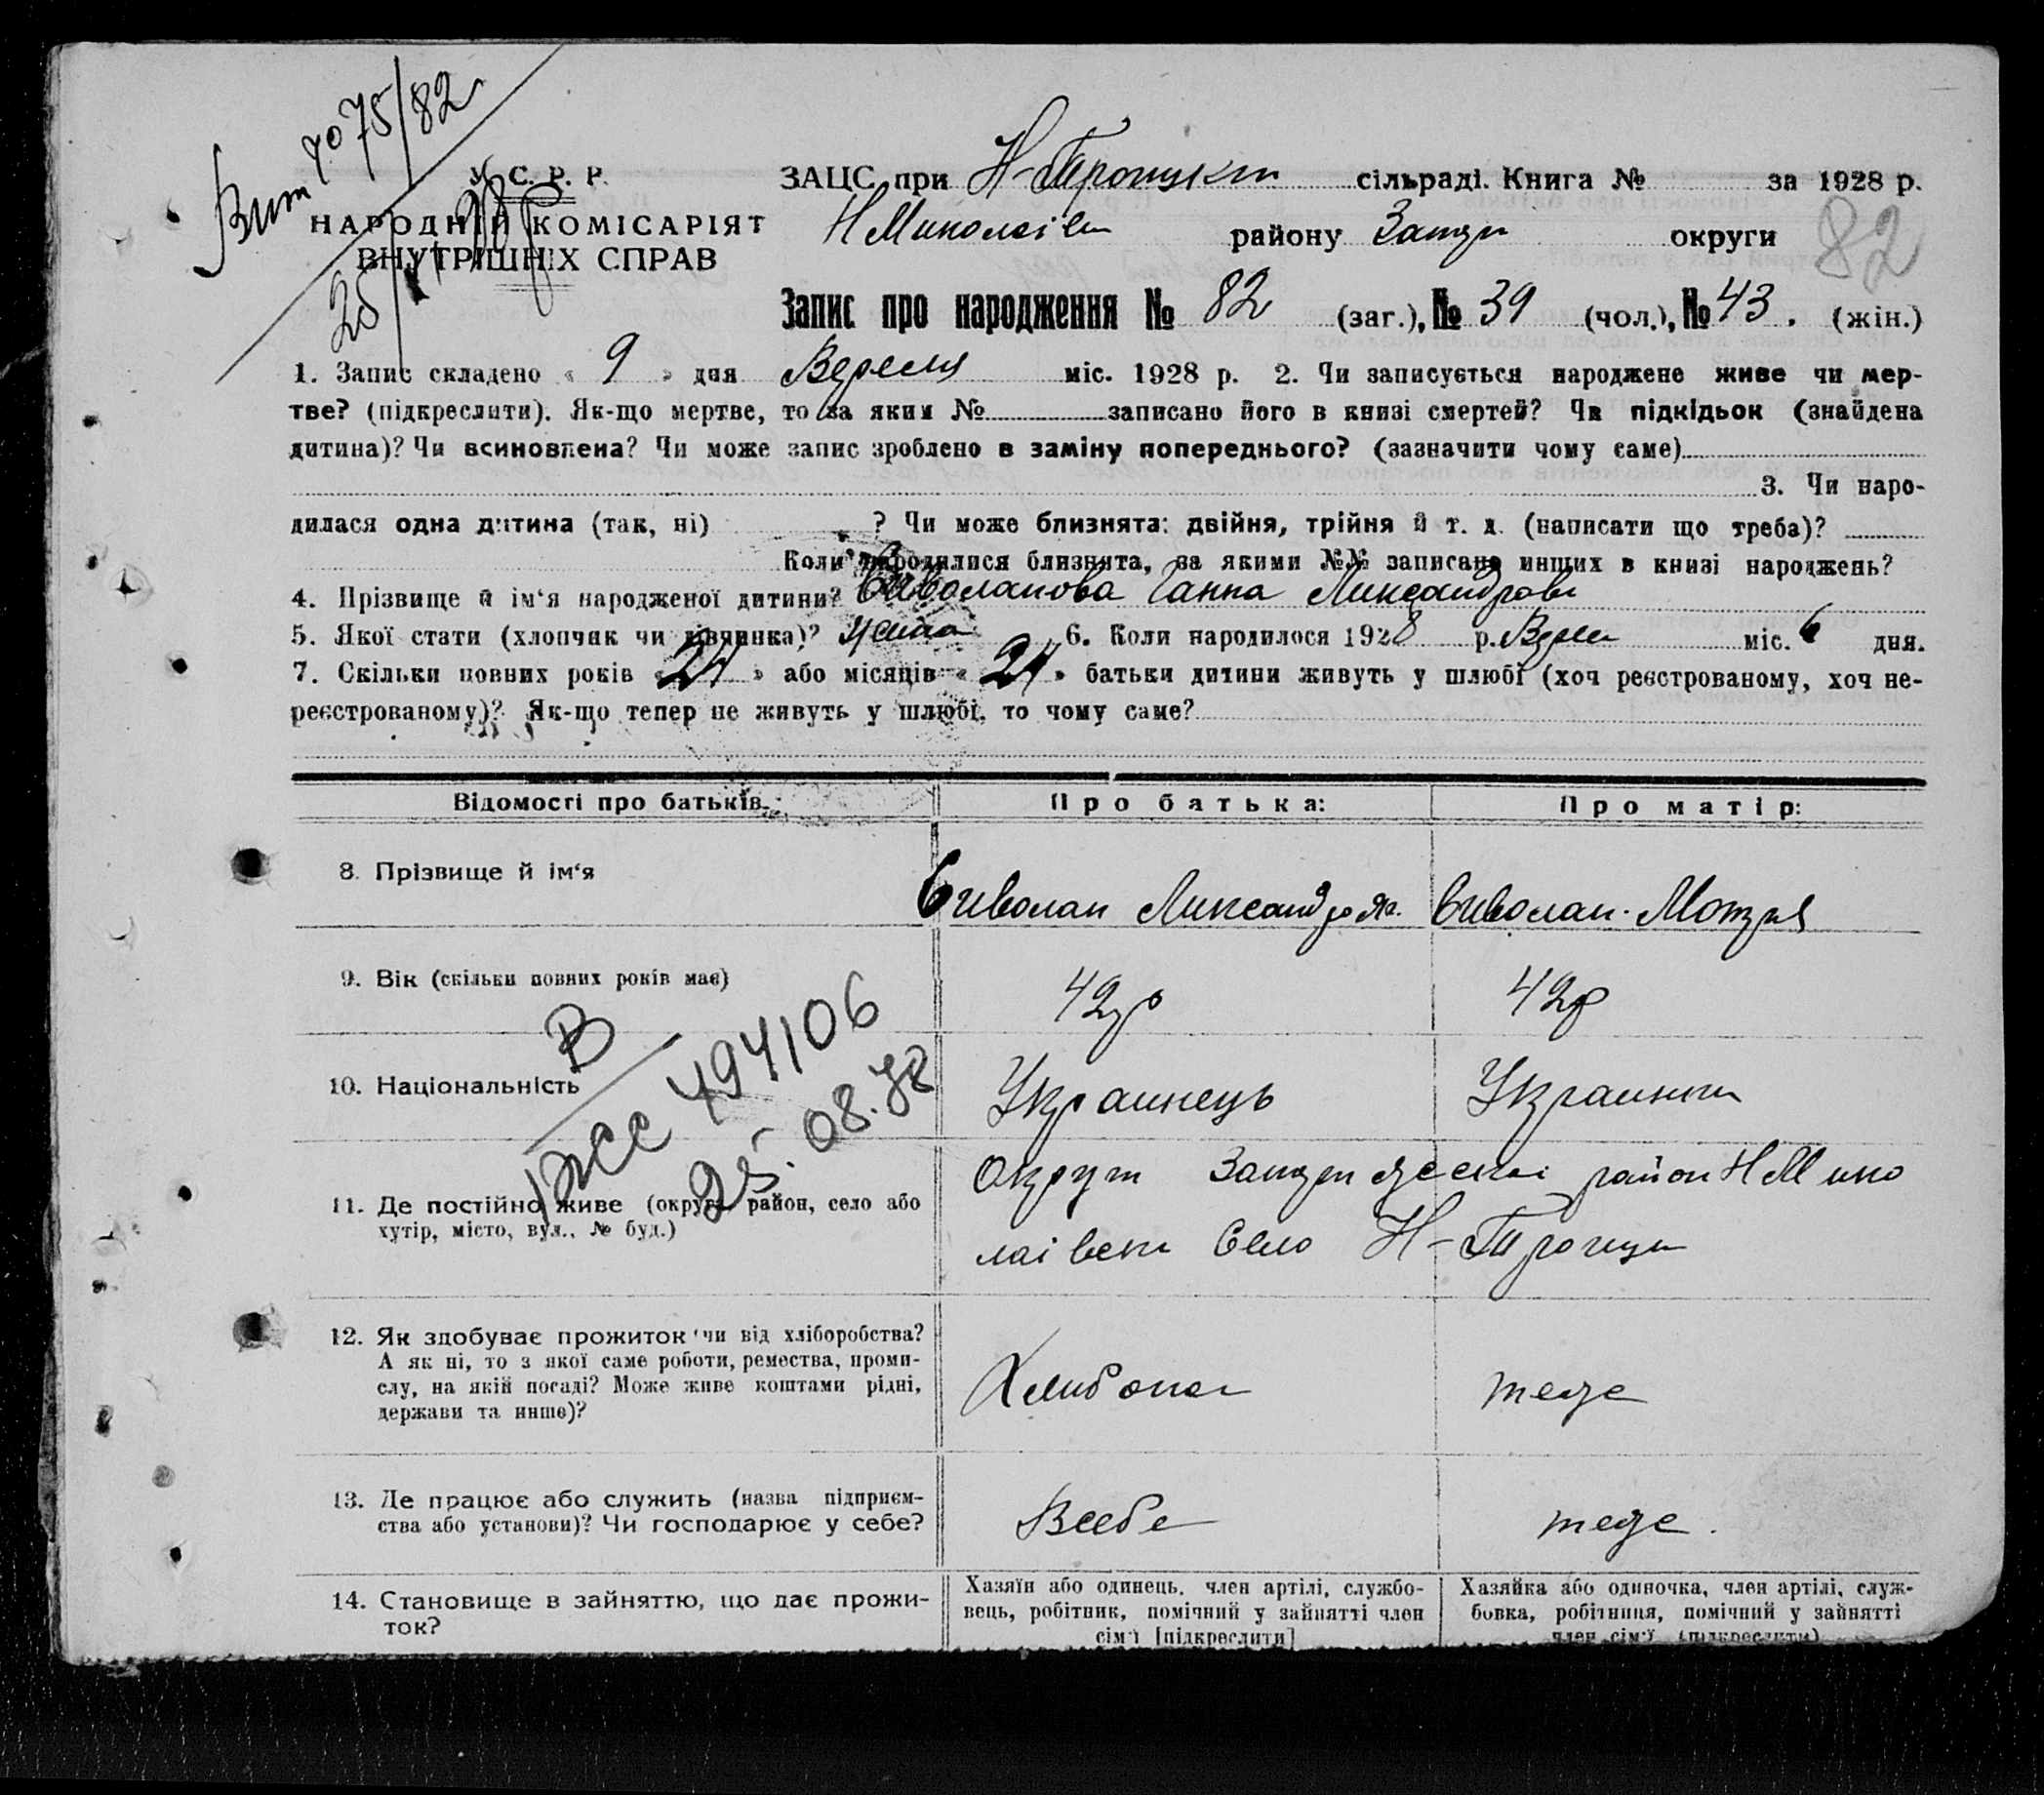 Вит 7075/82
У. С. Р. Р.
НАРОДНІЙ КОМІСАРІЯТ
ВНУТРІШНІХ СПРАВ
ЗАЦС при Н-Троицкт сільраді. Книга № за 1928 р.
НМиколаів района району Запор округи
82
Запис про народження № 82 (заг.), № 39 (чол.), № 43. (жін.)
1. Запис складено « 9 » дня Вересня міс. 1928 р. 2. Чи записується народжене живе чи мер-
тве? (підкреслити). Як-що мертве, то за яким № записано його в книзі смертей? Чи підкідьок (знайдена
дитина)? Чи всиновлена? Чи може запис зроблено в заміну попереднього? (зазначити чому саме)
3. Чи наро-
дилася одна дитина (так, ні) ? Чи може близнята: двійня, трійня й т. д. (написати що треба)?
Коли народилися близнята, за якими №№ записано инших в книзі народжень?
4. Прізвище й ім‘я народженої дитини? Сиволапова Ганна Ликсандрови
5. Якої стати (хлопчик чи дівчинка)? 6. Коли народилося 1928 р. міс. 6 дня.
7. Скільки повних років « 24 » або місяців « 24 » батьки дитини живуть у шлюбі (хоч реєстрованому, хоч не-
реєстрованому)? Як-що тепер не живуть у шлюбі, то чому саме?
Відомості про батьків: Про батька: Про матір:
8. Прізвище й ім‘я Сиволап Ликсандр Сиволап. Мотря
9. Вік (скільки повних років має) 42р 42р
В
рсс 494106
25. 08.
10. Національність Украинець Украинка
11. Де постійно живе (округа, район, село або
хутір, місто, вул., № буд.)
Округи район НМико
лаівски Село Н-Троицки
12. Як здобуває прожиток чи від хліборобства?
А як ні, то з якої саме роботи, ремества, проми-
слу, на якій посаді? Може живе коштами рідні,
держави та инше)?
теже
13. Де працює або служить (назва підприєм-
ства або установи)? Чи господарює у себе?
Всебе теже.
14. Становище в зайняттю, що дає прожи-
ток?
Хазяїн або одинець, член артілі, службо-
вець, робітник, помічний у зайнятті член
сім‘ї [підкреслити]
Хазяйка або одиночка, член артілі, служ-
бовка, робітниця, помічний у зайнятті
член сім‘ї (підкреслити)